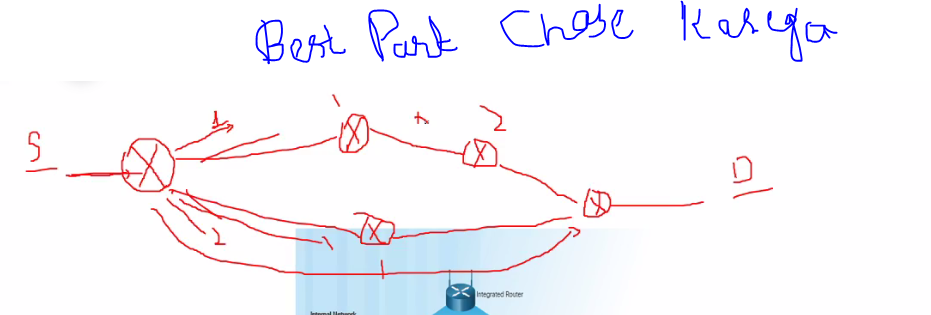 Best Part Chose Karega
1
1
2
S
D
2
1
Integrated Router
Internal Network